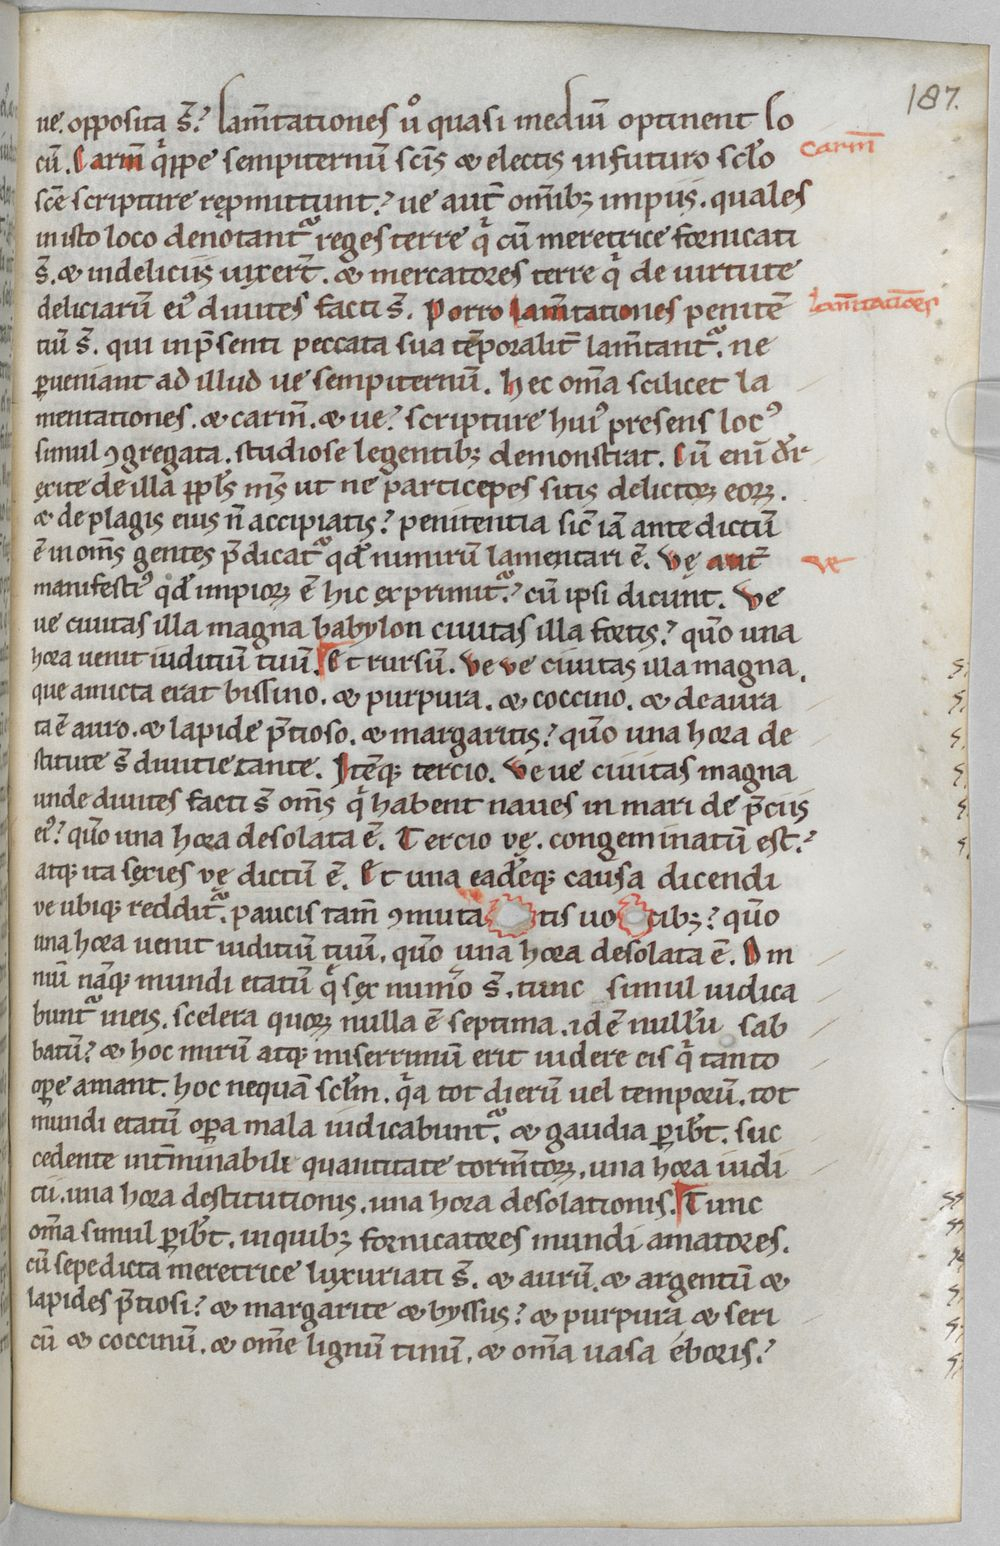 187.
ne. opposita s̄.' lam̄tationes u͛o quasi mediū optinent lo
cū. Carm̄ q̇ppe sempiternū sc̄is & electis in futuro sc̄lo
carm̄
sc̄e scripture rep̱mittunt.' ue aut̄ om̄ibꝫ impiis. quales
in isto loco denotant᷑ reges terre q̇ cū meretrice fornicati
s̄. & in deliciis uixer̄t. & mercatores terre q̇ de uirtute
deliciarū eiꝰ diuites facti s̄. Porro lam̄tationes penitē
lam̄tatiōes
tiū s̄. qui in p̄senti peccata sua tēporalit̄ lam̄tant᷑. ne
ꝑueniant ad illud ue sempiternū. hec om̄a scilicet la
mentationes. & carm̄. & ue.' scripture huiꝰ presens locꝰ
simul ꝯgregata. studiose legentibꝫ demonstrat. Cū enī dr̄
exite de illa ppl̄s m̄s ut ne participes sitis delictoꝝ eoꝝ.
& de plagis eius n̄ accipiatis.' penitentia sic̄ iā ante dictū
ē in om̄s gentes p̄dicat᷑ qd̄ nimirū lamentari ē. Vę aut̄
ve
manifestꝰ qd̄ impioꝝ ē hic exprimit᷑.' cū ipsi dicunt. Ve
ue ciuitas illa magna babylon ciuitas illa fortis.' qm̄o una
hora uenit iuditiū tuū. Et rursū. Ve ve ciuitas illa magna.
que amicta erat bissino. & purpura. & coccino. & deaura
ta ē auro. & lapide p̄tioso. & margaritis.' qm̄o una hora de
stitute s̄ diuitie tante. Itēqꝫ tercio. Ve ue ciuitas magna
unde diuites facti s̄ om̄s q̇ habent naues in mari de p̄ciis
eiꝰ.' qm̄o una hora desolata ē. Tercio vę. congeminatū est.'
atqꝫ ita series vę dictū ē. Et una eadēqꝫ causa dicendi
ve ubiqꝫ reddit᷑. paucis tam̄ ꝯmuta tis uo cibꝫ.' qm̄o
una hora uenit iuditiū tuū, qm̄o una hora desolata ē. Om
niū nāqꝫ mundi etatū q̇ sex num̄o s̄. tunc simul iudica
bunt᷑ in eis. scelera quoꝝ nulla ē septima. id ē null'u sab
batū.' & hoc mirū atqꝫ miserrimū erit uidere eis q̇ tanto
oꝑe amant. hoc nequā sc̄lm. q̇a tot dierū uel temporū. tot
mundi etatū oꝑa mala iudicabunt᷑. & gaudia ꝑib̄t. suc
cedente int̄minabili quantitate torm̄toꝝ, una hora iudi
tii. una hora destitutionis. una hora desolationis. Tunc
om̄a simul ꝑib̄t. in quibꝫ fornicatores mundi amatores.
cū sepe dicta meretrice luxuriati s̄. & aurū. & argentū &
lapides p̄tiosi.' & margarite & byssus.' & purpura & seri
cū & coccinū. & om̄e lignū tinū, & om̄a uasa eboris.'